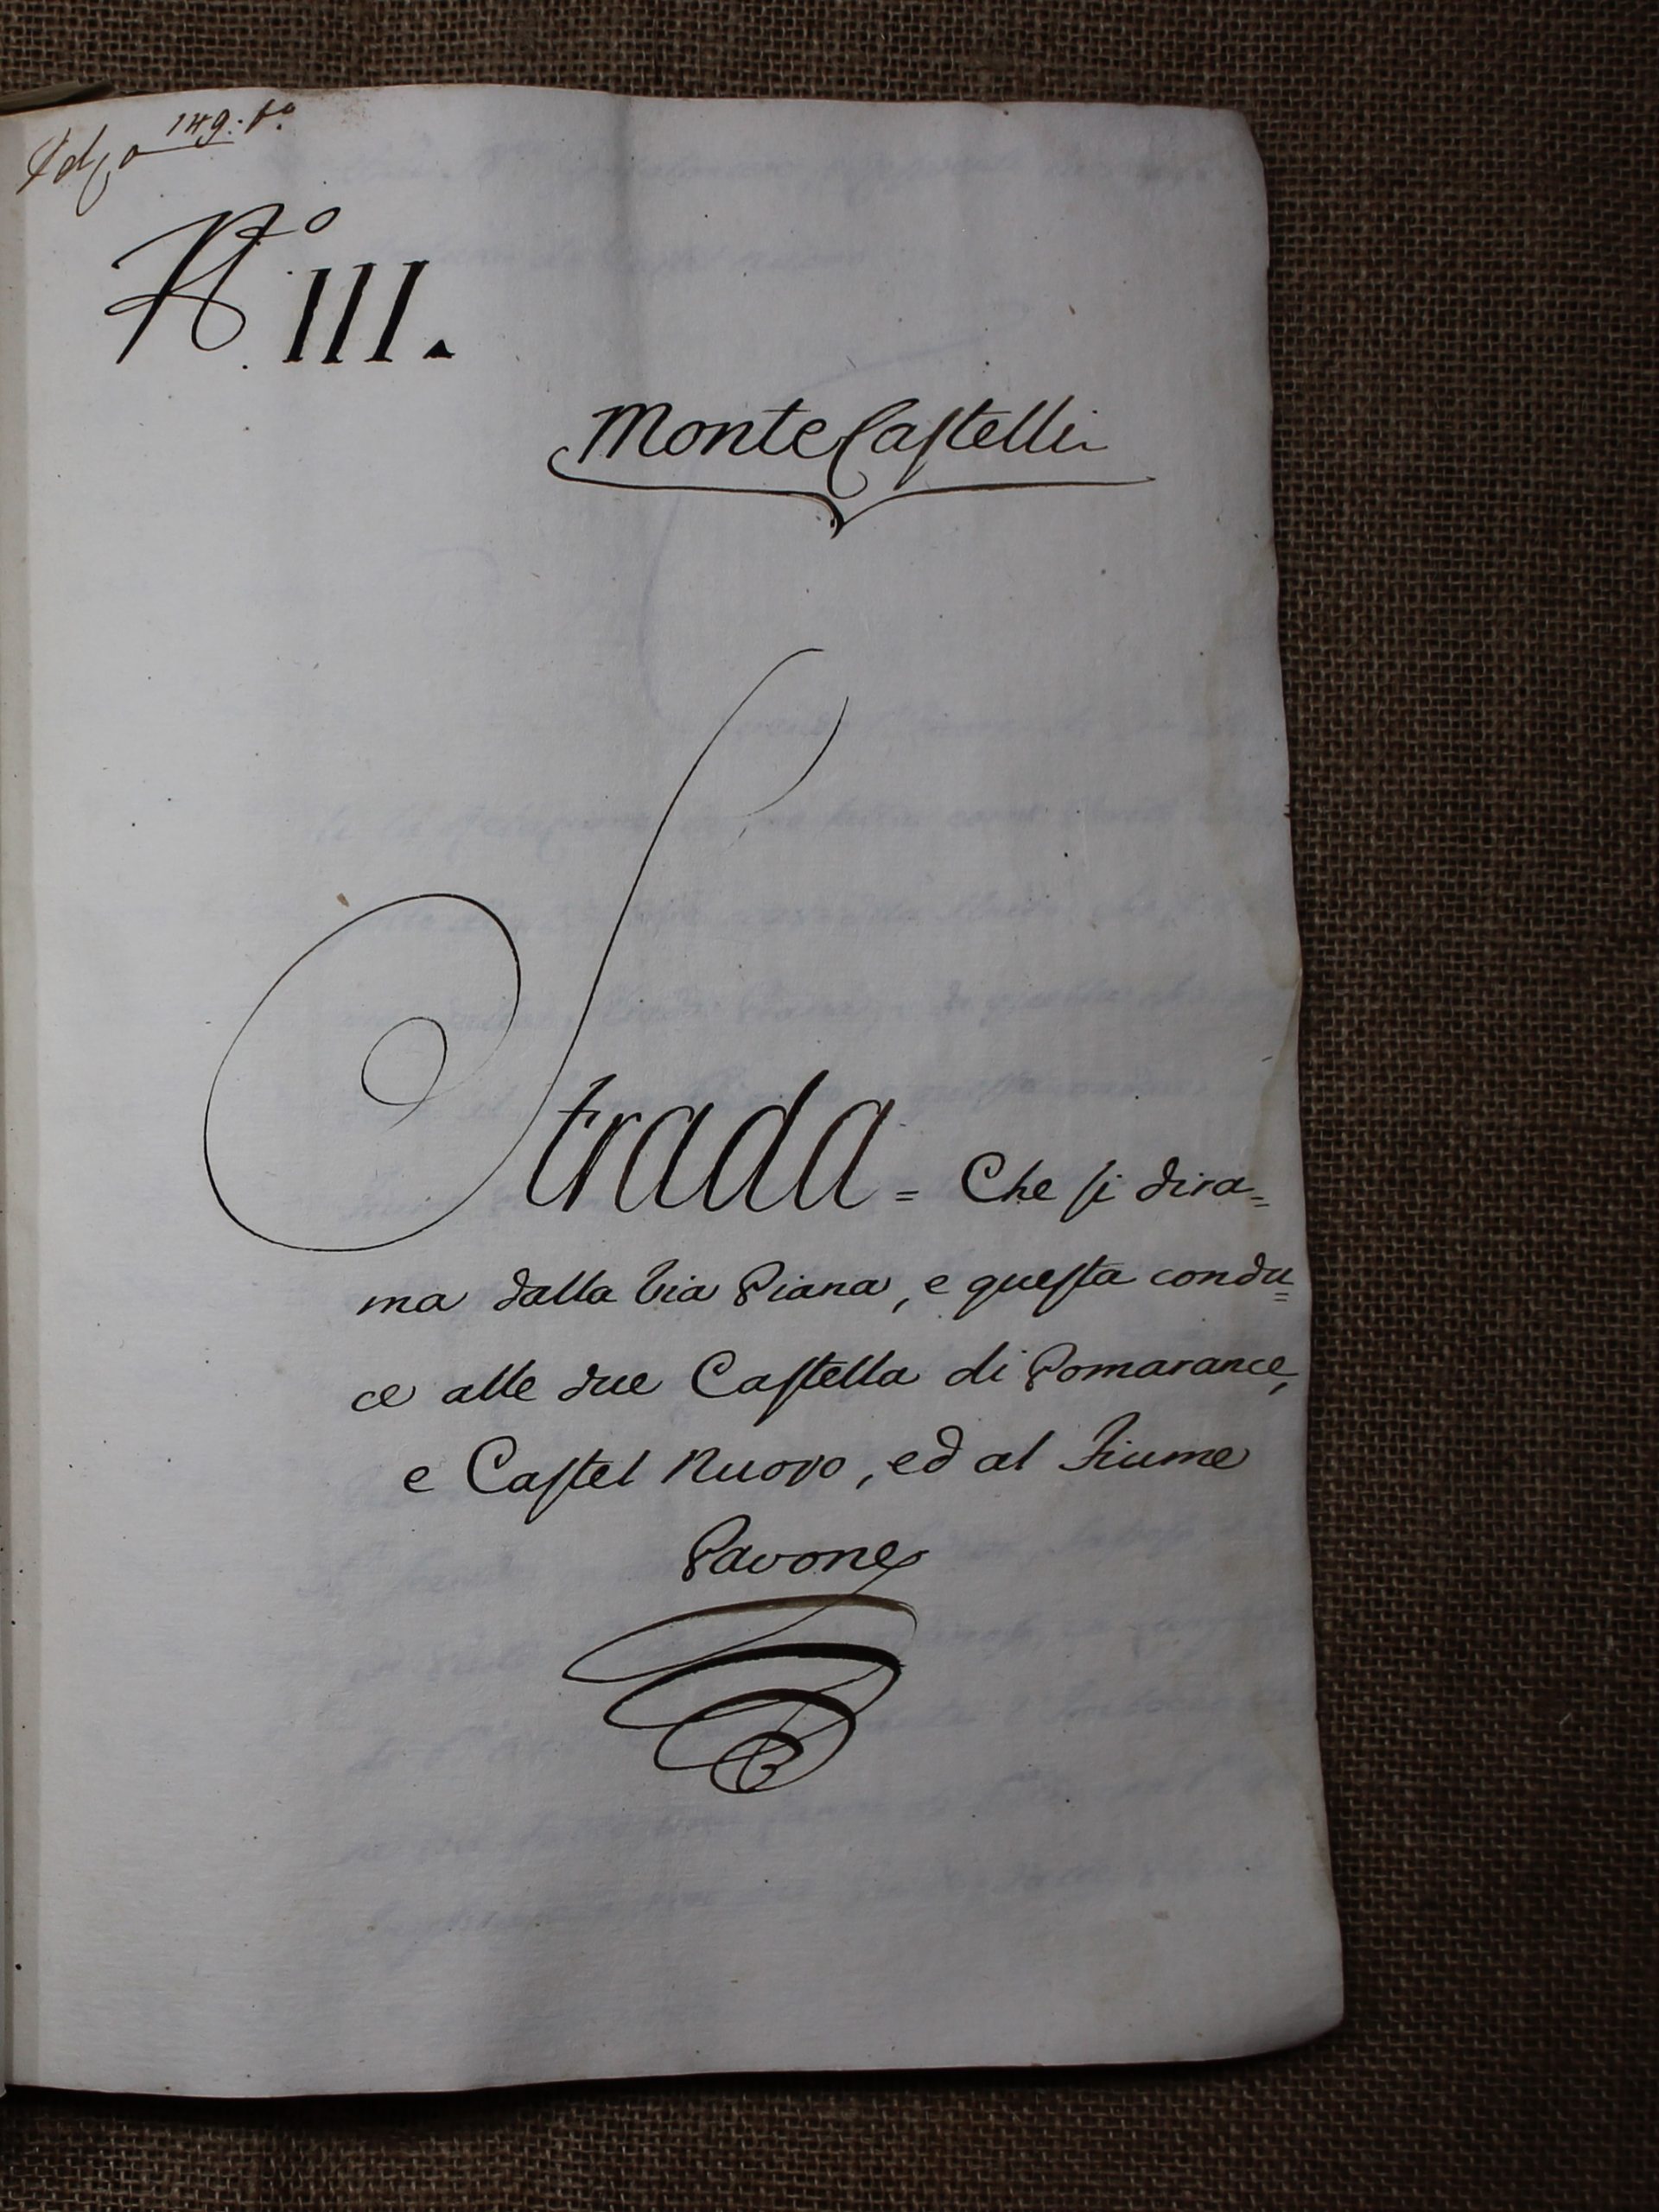 149: to
No III.
Monte Castelli
Strada = Che si dira=
ma dalla Via Piana, e questa condu=
ce alle due Castella di Pomarance,
e Castel Nuovo, ed al Fiume
Pavone